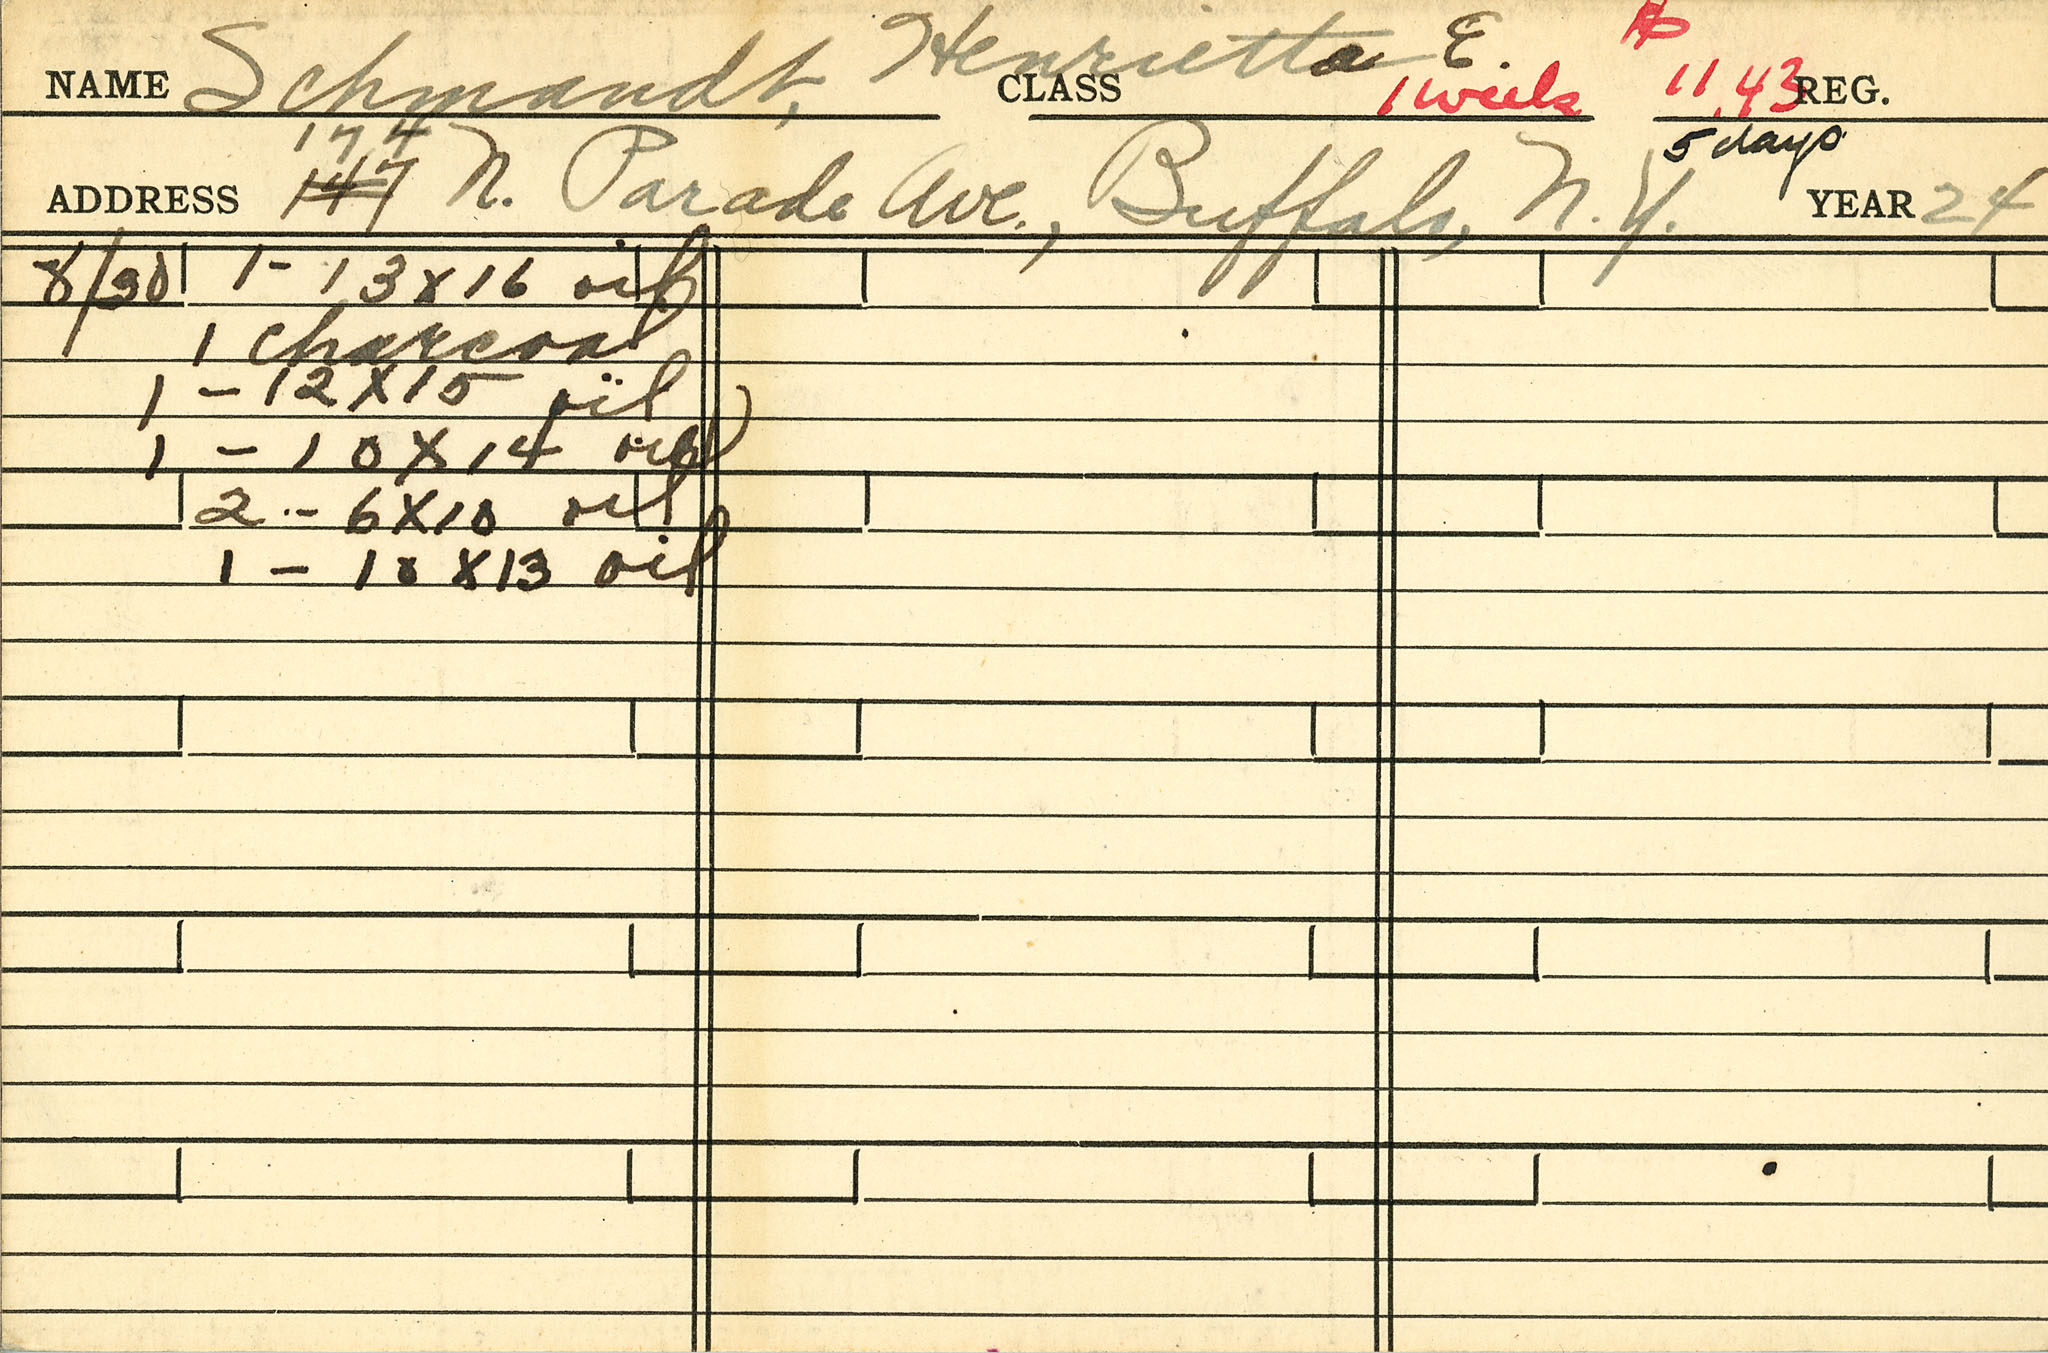 NAME Schmandt, Henrietta E. CLASS 1 week 11.43 REG.
5 days
174
ADDRESS 147 N. Parade Ave., Buffalo, N.Y. YEAR 24
8/30 1 - 13 x 16 oil
1 charcoal
1 - 12 x 15 oil
1 - 10 x 14 oil
2 - 6 x 10 oil
1 - 10 x 13 oil